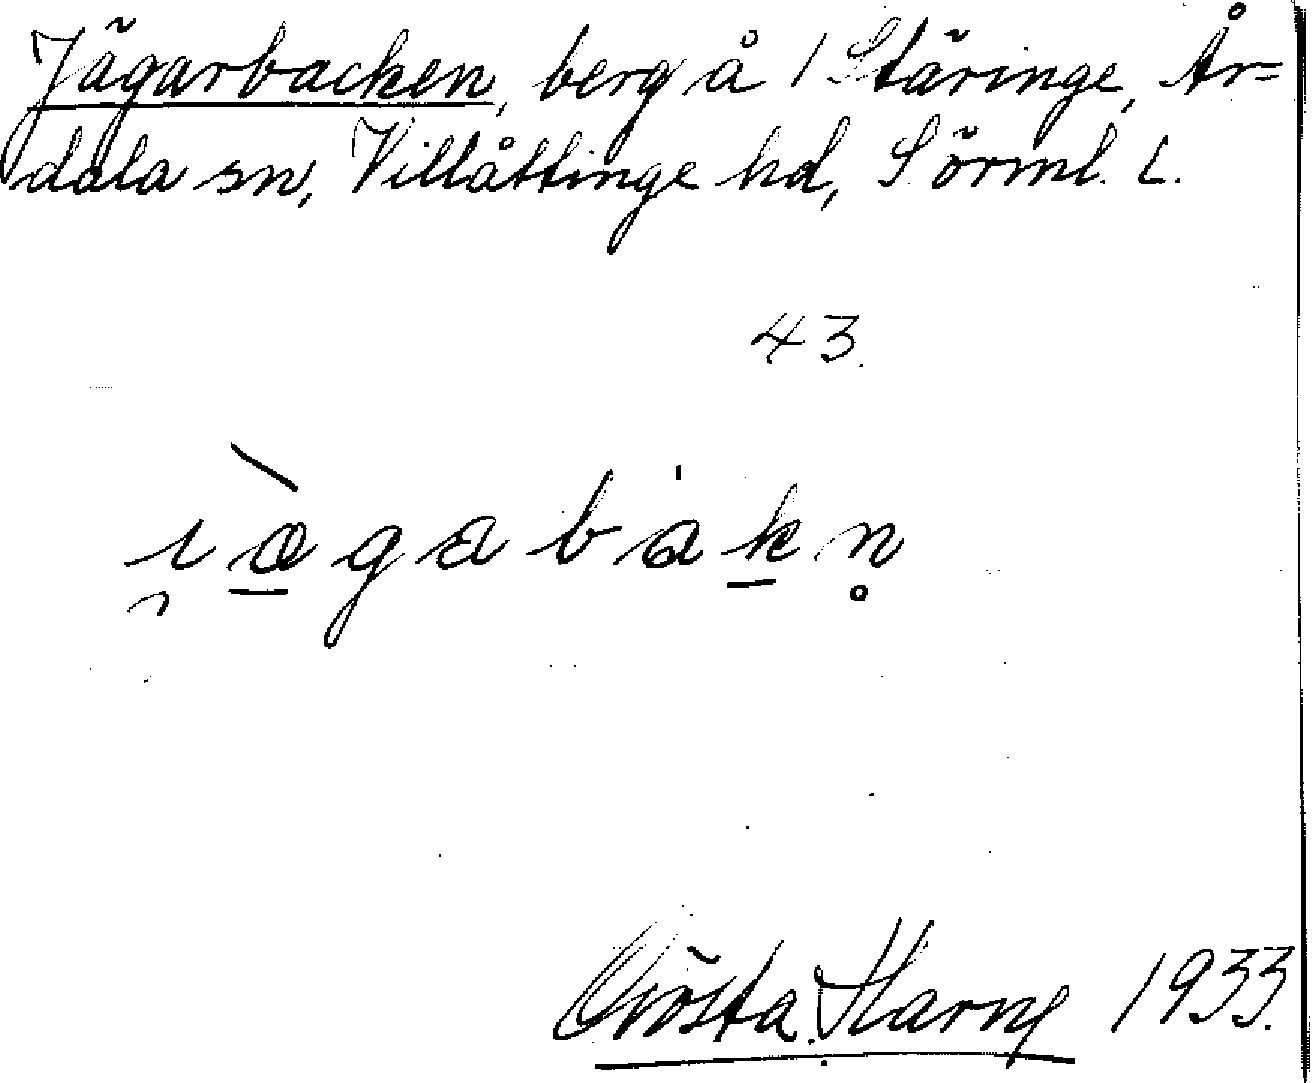 Jägarbacken, berg å 1 Stäringe, År=
dala sn, Villåttinge hd, Sörml. L.
43.
Gösta Harny 1933.